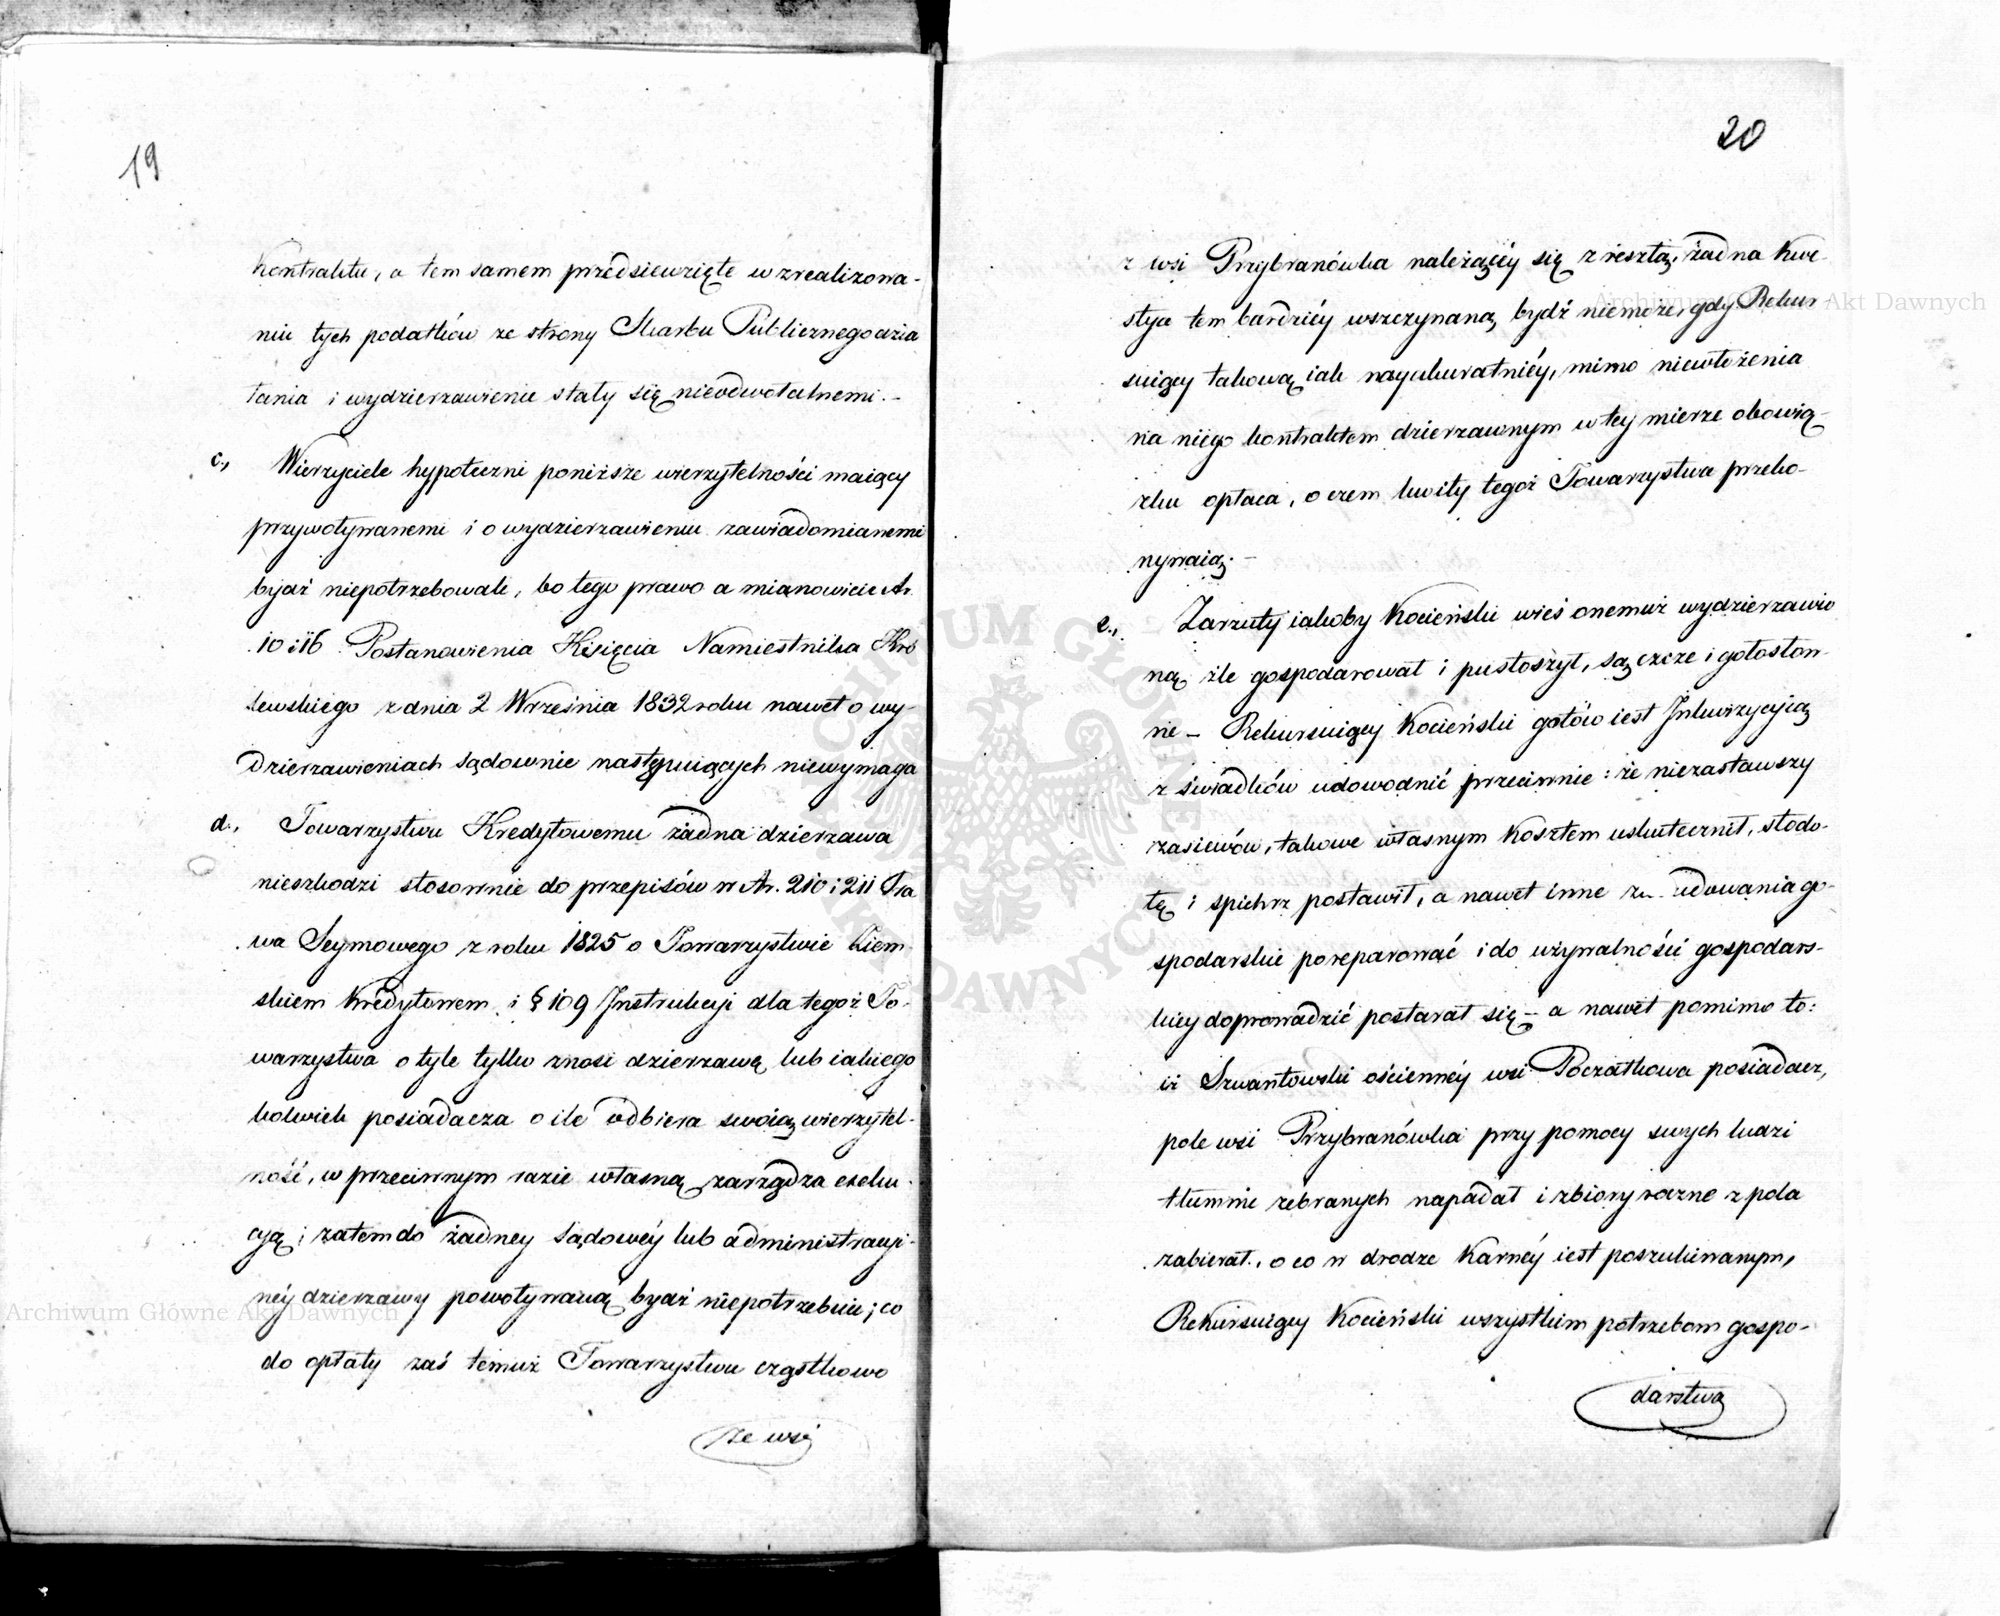 19
kontraktu, a tem samem przedsiewzięte w zrealizowa-
niu tych podatków ze strony Skarbu Publicznego dzia
łania i wydzierzawienie stały się nieodwołalnemi. -
c., Wierzyciele hypoteczni poniższe wierzytelności maiący
przywoływanemi i o wydzierzawieniu zawiadomianemi
bydź niepotrzebowali, bo tego prawo a mianowicie Ar.
10 i 16 Postanowienia Xsięcia Namiestnika Kró
lewskiego z dnia 2 Września 1832 roku nawet o wy-
dzierzawieniach sądownie następuiących niewymaga
d., Towarzystwu Kredytowemu żadna dzierzawa
nieszkodzi stosownie do przepisów w Ar. 210 i 211 Pra
wa Seymowego z roku 1825 o Towarzystwie Ziem-
skiem Kredytowem i § 109 Instrukcyi dla tegoż To-
warzystwa o tyle tylko znosi dzierzawę lub iakiego
kolwiek posiadacza o ile odbiera swoią wierzytel-
ność, w przeciwnym razie własną zarządza exeku-
cyą i zatem do żadney sądowéy lub administracyi-
néy dzierzawy powoływaną bydź niepotrzebuie; co
do opłaty zaś temuż Towarzystwu cząstkowo
ze wsi
20
z wsi Przybranówka należącéy się z resztą, żadna kwe-
stya tem bardziéy wszczynaną bydź niemoże, gdy Rekur-
suiący takową iak nayakuratniéy, mimo niewłożenia
na niego kontraktem dzierzawnym w tey mierze obowią-
zku opłaca, o czem kwity tegoż Towarzystwa przeko-
nywaią. -
e., Zarzuty iakoby Kocieński wieś onemuż wydzierzawio
ną źle gospodarował i pustoszył, są czcze i gołosłow-
ne - Rekursuiący Kocieński gotów iest Inkwizycyią
z świadków udowodnić przeciwnie: że niezastawszy
zasiewów, takowe własnym kosztem uskutecznił, stodo-
łę i spichrz postawił, a nawet inne zabudowania go-
spodarskie poreparować i do używalności gospodars-
kiey doprowadzić postarał się - a nawet pomimo to:
iż Szwantowski ościennéy wsi Poczałkowa posiadacz,
pole wsi Przybranówka przy pomocy swych ludzi
tłumnie zebranych napadał i zbiory rożne z pola
zabierał, o co w drodze Karnéy iest poszukiwanym,
Rekursuiący Kocieński wszystkim potrzebom gospo-
darstwa
Archiwum Główne Akt Dawnych
Archiwum Główne Akt Dawnych
ARCHIWUM GŁÓWNE AKT DAWNYCH